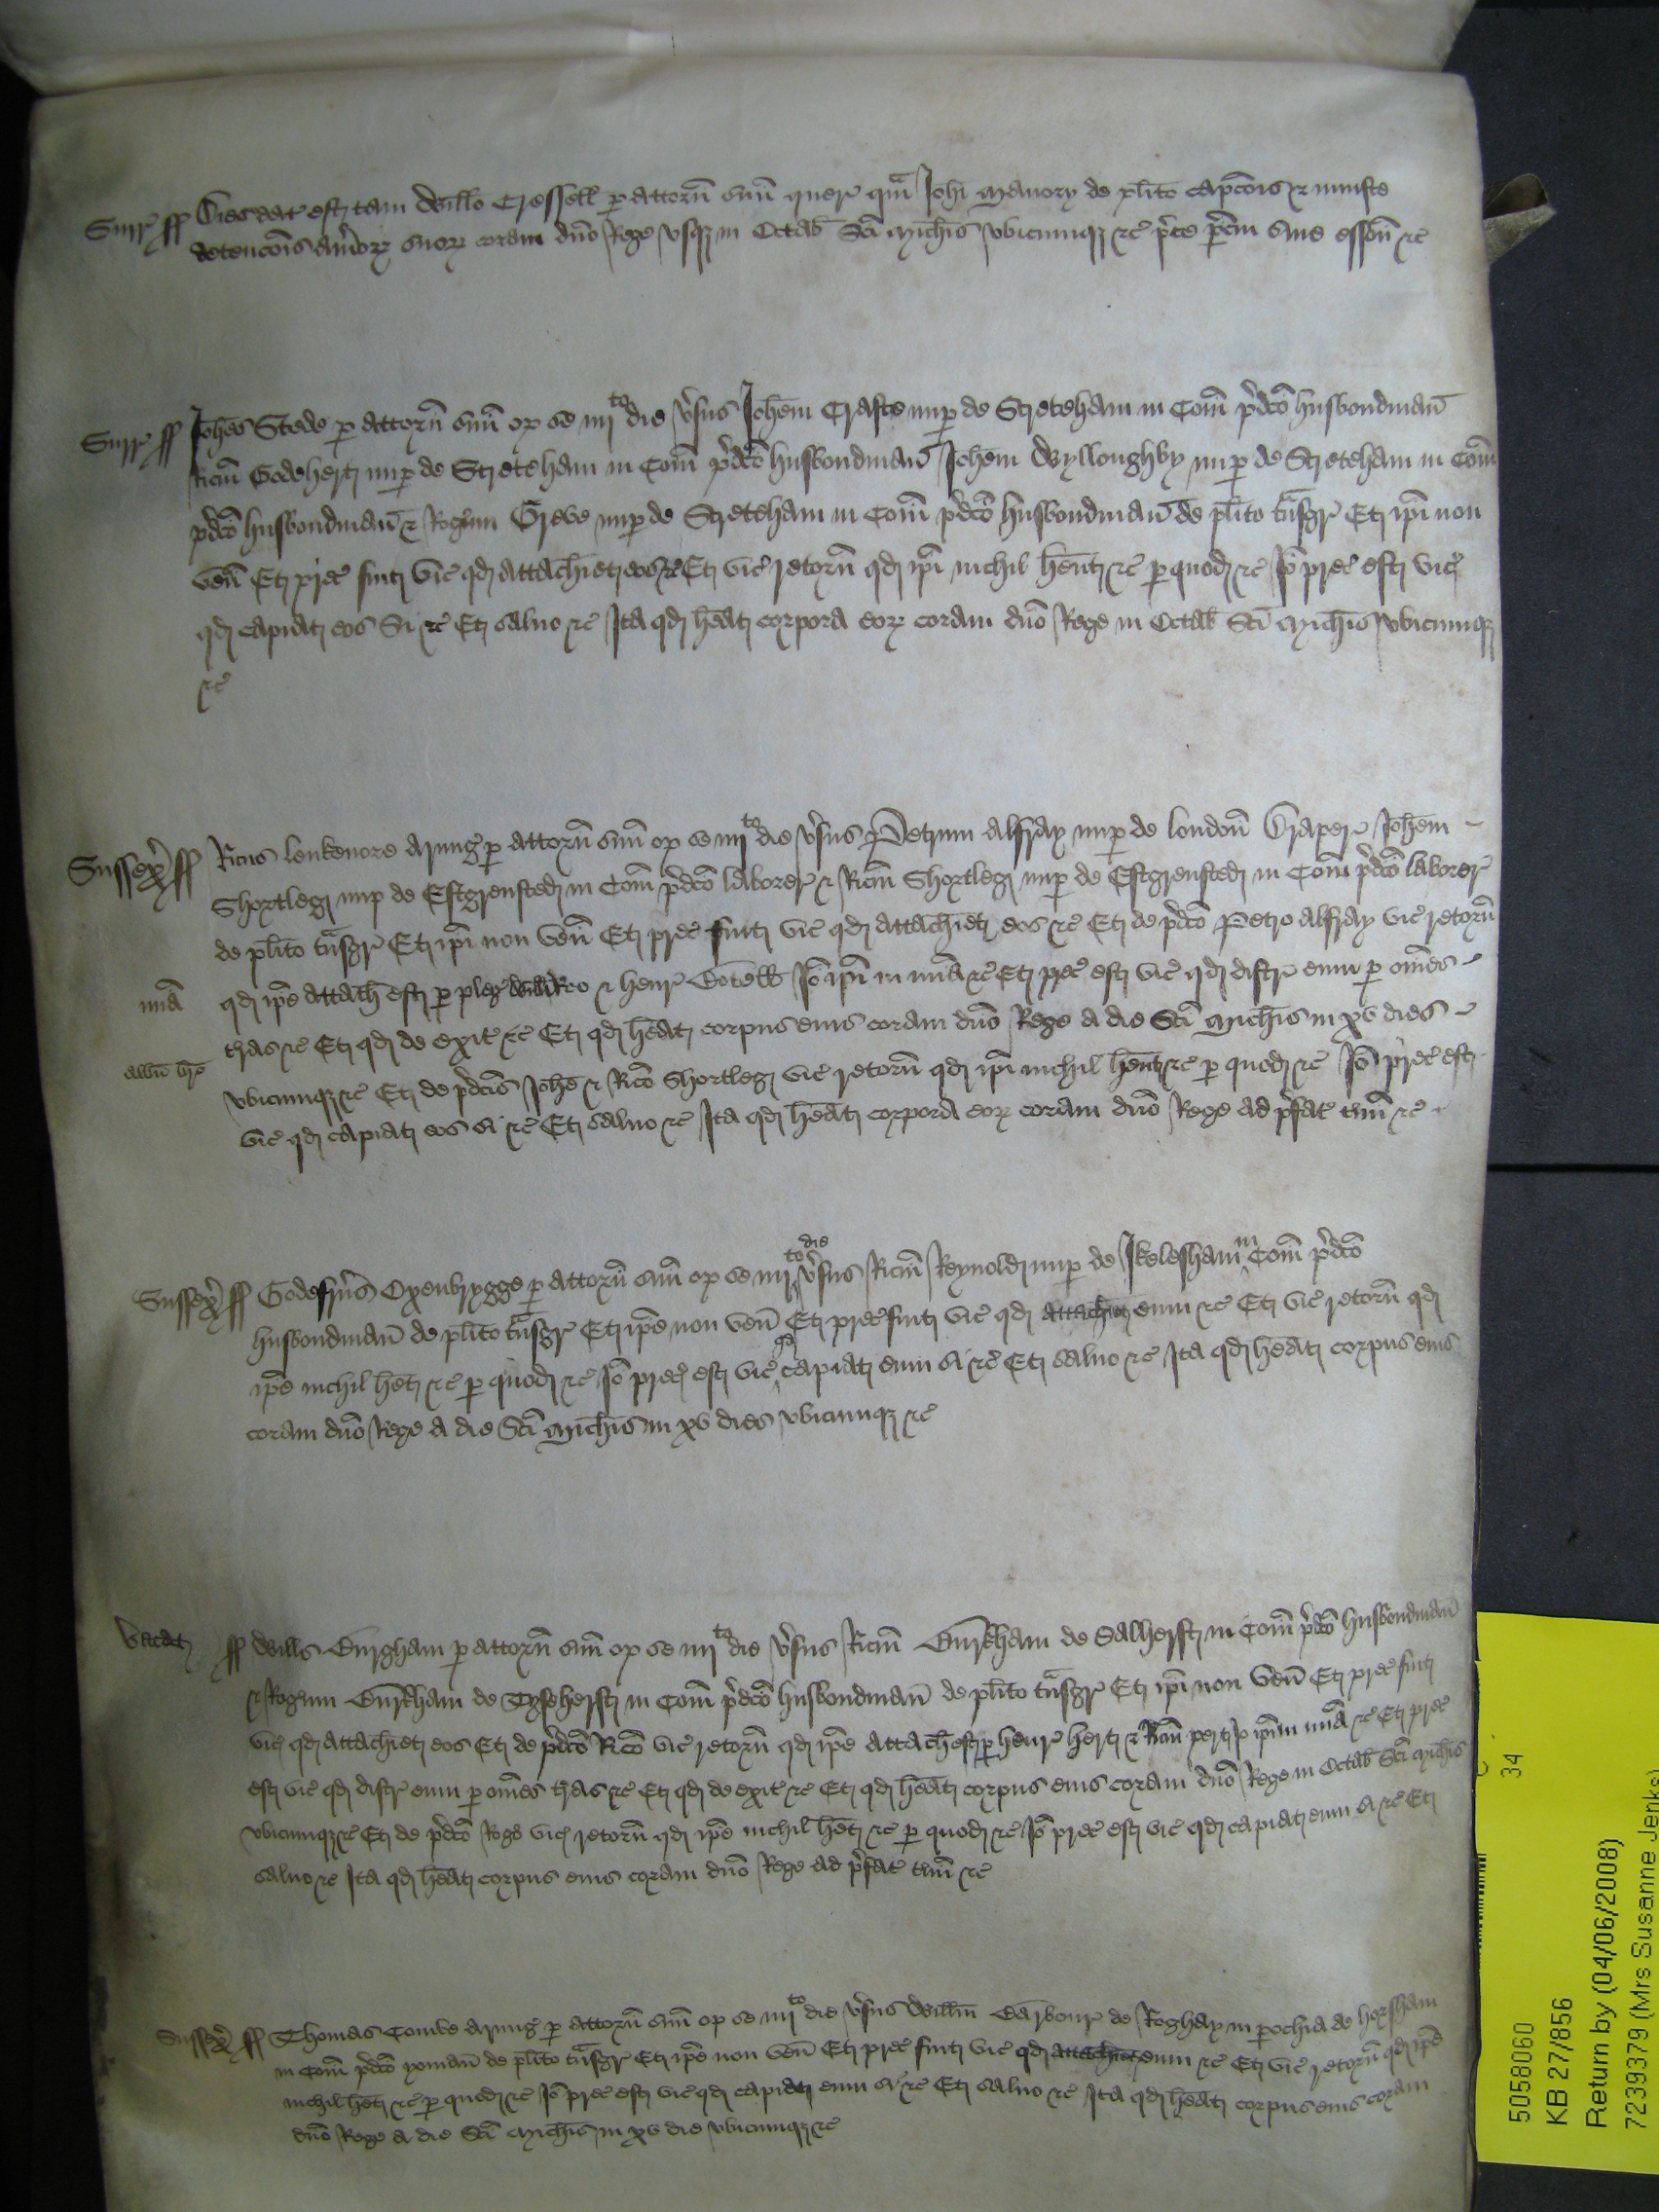 Surr̃ ff Dies dat̃ est tam Will̃o Cressell p attorñ suũ quer̃ qm̃ Joh̃i Mavory de pl̃ito capc̃ois & iniuste
detenc̃ois av̾ioꝝ suoꝝ coram dño Rege vsqꝫ in Octab̃ Sc̃i Mich̃is vbicumqꝫ &c̃ p̾ce parciũ sine esson̄ &c̃
Surr̃ ff Joh̃es Stede p attorñ suũ op se iiij to die v̾sus Joh̃em Crafte nup de Streteham in Com̃ p̾dc̃o husbondmañ
Ric̃m Godeherst nup de Streteham in Com̃ p̾dc̃o husbondmañ Joh̃em Wylloughby nup de Streteham in Com̃
p̾dc̃o husbondmañ & Rog̾um Greve nup de Streteham in Com̃ p̾dc̃o husbondmañ de pl̃ito tñsgr̃ Et ip̃i non
veñ Et prec̃ fuit vic̃ qd attach̃iet eos &c̃ Et vic̃ retorñ qd ip̃i nichil hẽnt &c̃ p quod &c̃ Iõ prec̃ est vic̃
qd capiat eos Si &c̃ Et salvo &c̃ Ita qd hẽat corpora eoꝝ coram dño Rege in Octab̃ Sc̃i Mich̃is vbicumqꝫ
&c̃
Sussex̃ ff Ric̃us Leukenore Armig̾ p attorñ suũ op se iiij to die v̾sus Petrum Alfray nup de londoñ Draper̃ Joh̃em
Shortlegꝫ nup de Estgrensted in Com̃ p̾dc̃o laborer̃ & Ric̃m Shortlegꝫ nup de Estgrensted in Com̃ p̾dc̃o laborer̃
de pl̃ito tñsgr̃ Et ip̃i non veñ Et prec̃ fuit vic̃ qd attach̃iet eos &c̃ Et de p̾dc̃o Petro Alfray vic̃ retorñ
mĩa qd ip̃e attach̃ est p pleg̃ & Henr̃ Iõ ip̃e in mĩa &c̃ Et prec̃ est vic̃ qd distr̃ eum p om̃es
t̾ras &c̃ Et qd de exit̃ &c̃ Et qd hẽat corpus eius coram dño Rege a die Sc̃i Mich̃is in xv dies
vbicumqꝫ &c̃ Et de p̾dc̃is Joh̃e & Ric̃o Shortlegꝫ vic̃ retorñ qd ip̃i nichil hẽnt &c̃ p quod &c̃ Iõ prec̃ est
vic̃ qd capiat eos si &c̃ Et salvo &c̃ Ita qd hẽat corpora eoꝝ coram dño Rege ad p̾fat̃ t̾mĩ &c̃
Sussex̃ ff Godefrus Oxenbrygge p attorñ suũ op se iiij to die v̾sus Ric̃m Reynold nup de Ikelesham in Com̃ p̾dc̃o
husbondmañ de pl̃ito tñsgr̃ Et ip̃e non veñ Et prec̃ fuit vic̃ qd attach̃iet eum &c̃ Et vic̃ retorñ qd
ip̃e nichil hẽt &c̃ p quod &c̃ Iõ prec̃ est vic̃ qd capiat eum si &c̃ Et salvo &c̃ Ita qd hẽat corpus eius
coram dño Rege a die Sc̃i Mich̃is in xv dies vbicumqꝫ &c̃
Vacat ff Will̃s Burgham p attorñ suũ op se iiij to die v̾sus Ric̃m Burcham de Salherst in Com̃ p̾dc̃o husbondmañ
& Rog̾um Burcham de Tyseherst in Com̃ p̾dc̃o husbondmañ de pl̃ito tñsgr̃ Et ip̃i non veñ Et prec̃ fuit
vic̃ qd attach̃iet eos Et de p̾dc̃o Ric̃o vic̃ retorñ qd ip̃e attach̃ est p Henr̃ Hert & Ric̃m Pert Iõ ip̃e in mĩa &c̃ Et prec̃
est vic̃ qd distr̃ eum p om̃es t̾ras &c̃ Et qd de exit̃ &c̃ Et qd hẽat corpus eius coram dño Rege in Octab̃ Sc̃i Mich̃is
vbicumqꝫ &c̃ Et de p̾dc̃o Rog̾o vic̃ retorñ qd ip̃e nichil hẽt &c̃ p quod &c̃ Iõ prec̃ est vic̃ qd capiat eum si &c̃ Et
salvo &c̃ Ita qd hẽat corpus eius coram dño Rege ad p̾fat̃ t̾mĩ &c̃
Sussex̃ ff Thomas Combe Armig̾ p attorñ suũ op se iiij to die v̾sus Will̃m Barbour de Roghay in pochia de Horsham
in Com̃ p̾dc̃o yomañ de pl̃ito tñsgr̃ Et ip̃e non veñ Et prec̃ fuit vic̃ qd attach̃iet eum &c̃ Et vic̃ retorñ qd ip̃e
nichil hẽt &c̃ p quod &c̃ Iõ prec̃ est vic̃ qd capiat eum si &c̃ Et salvo &c̃ Ita qd hẽat corpus eius coram
dño Rege a die Sc̃i Mich̃is in xv die vbicumqꝫ &c̃
34
5058060
KB 27/856
Return by (04/06/2008)
7239379 (Mrs Susanne Jenks)